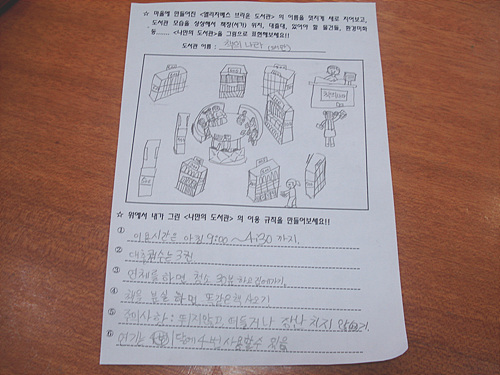 ☆ 마을에 만들어진 <엘리자베스 브라운 도서관> 의 이름을 멋지게 새로 지어보고,
도서관 모습을 상상해서 책장(서가) 위치, 대출대, 있어야 할 물건들, 환경미화
등...... <나만의 도서관>을 그림으로 표현해보세요!!
도서관 이름 : 책의 나라
☆ 위에서 내가 그린 <나만의 도서관> 의 이용 규칙을 만들어보세요!!
① 이용시간은 아침 9:00 ~ 4:30 까지.
② 대출권수는 3권
③ 연체를 하면, 청소
④ 책을 분실 하면 똑같은책 사오기
⑤ 주의사항 : 뛰지말고, 떠들거나 장난 치지 않
⑥ 달에 4번 사용할수 있음